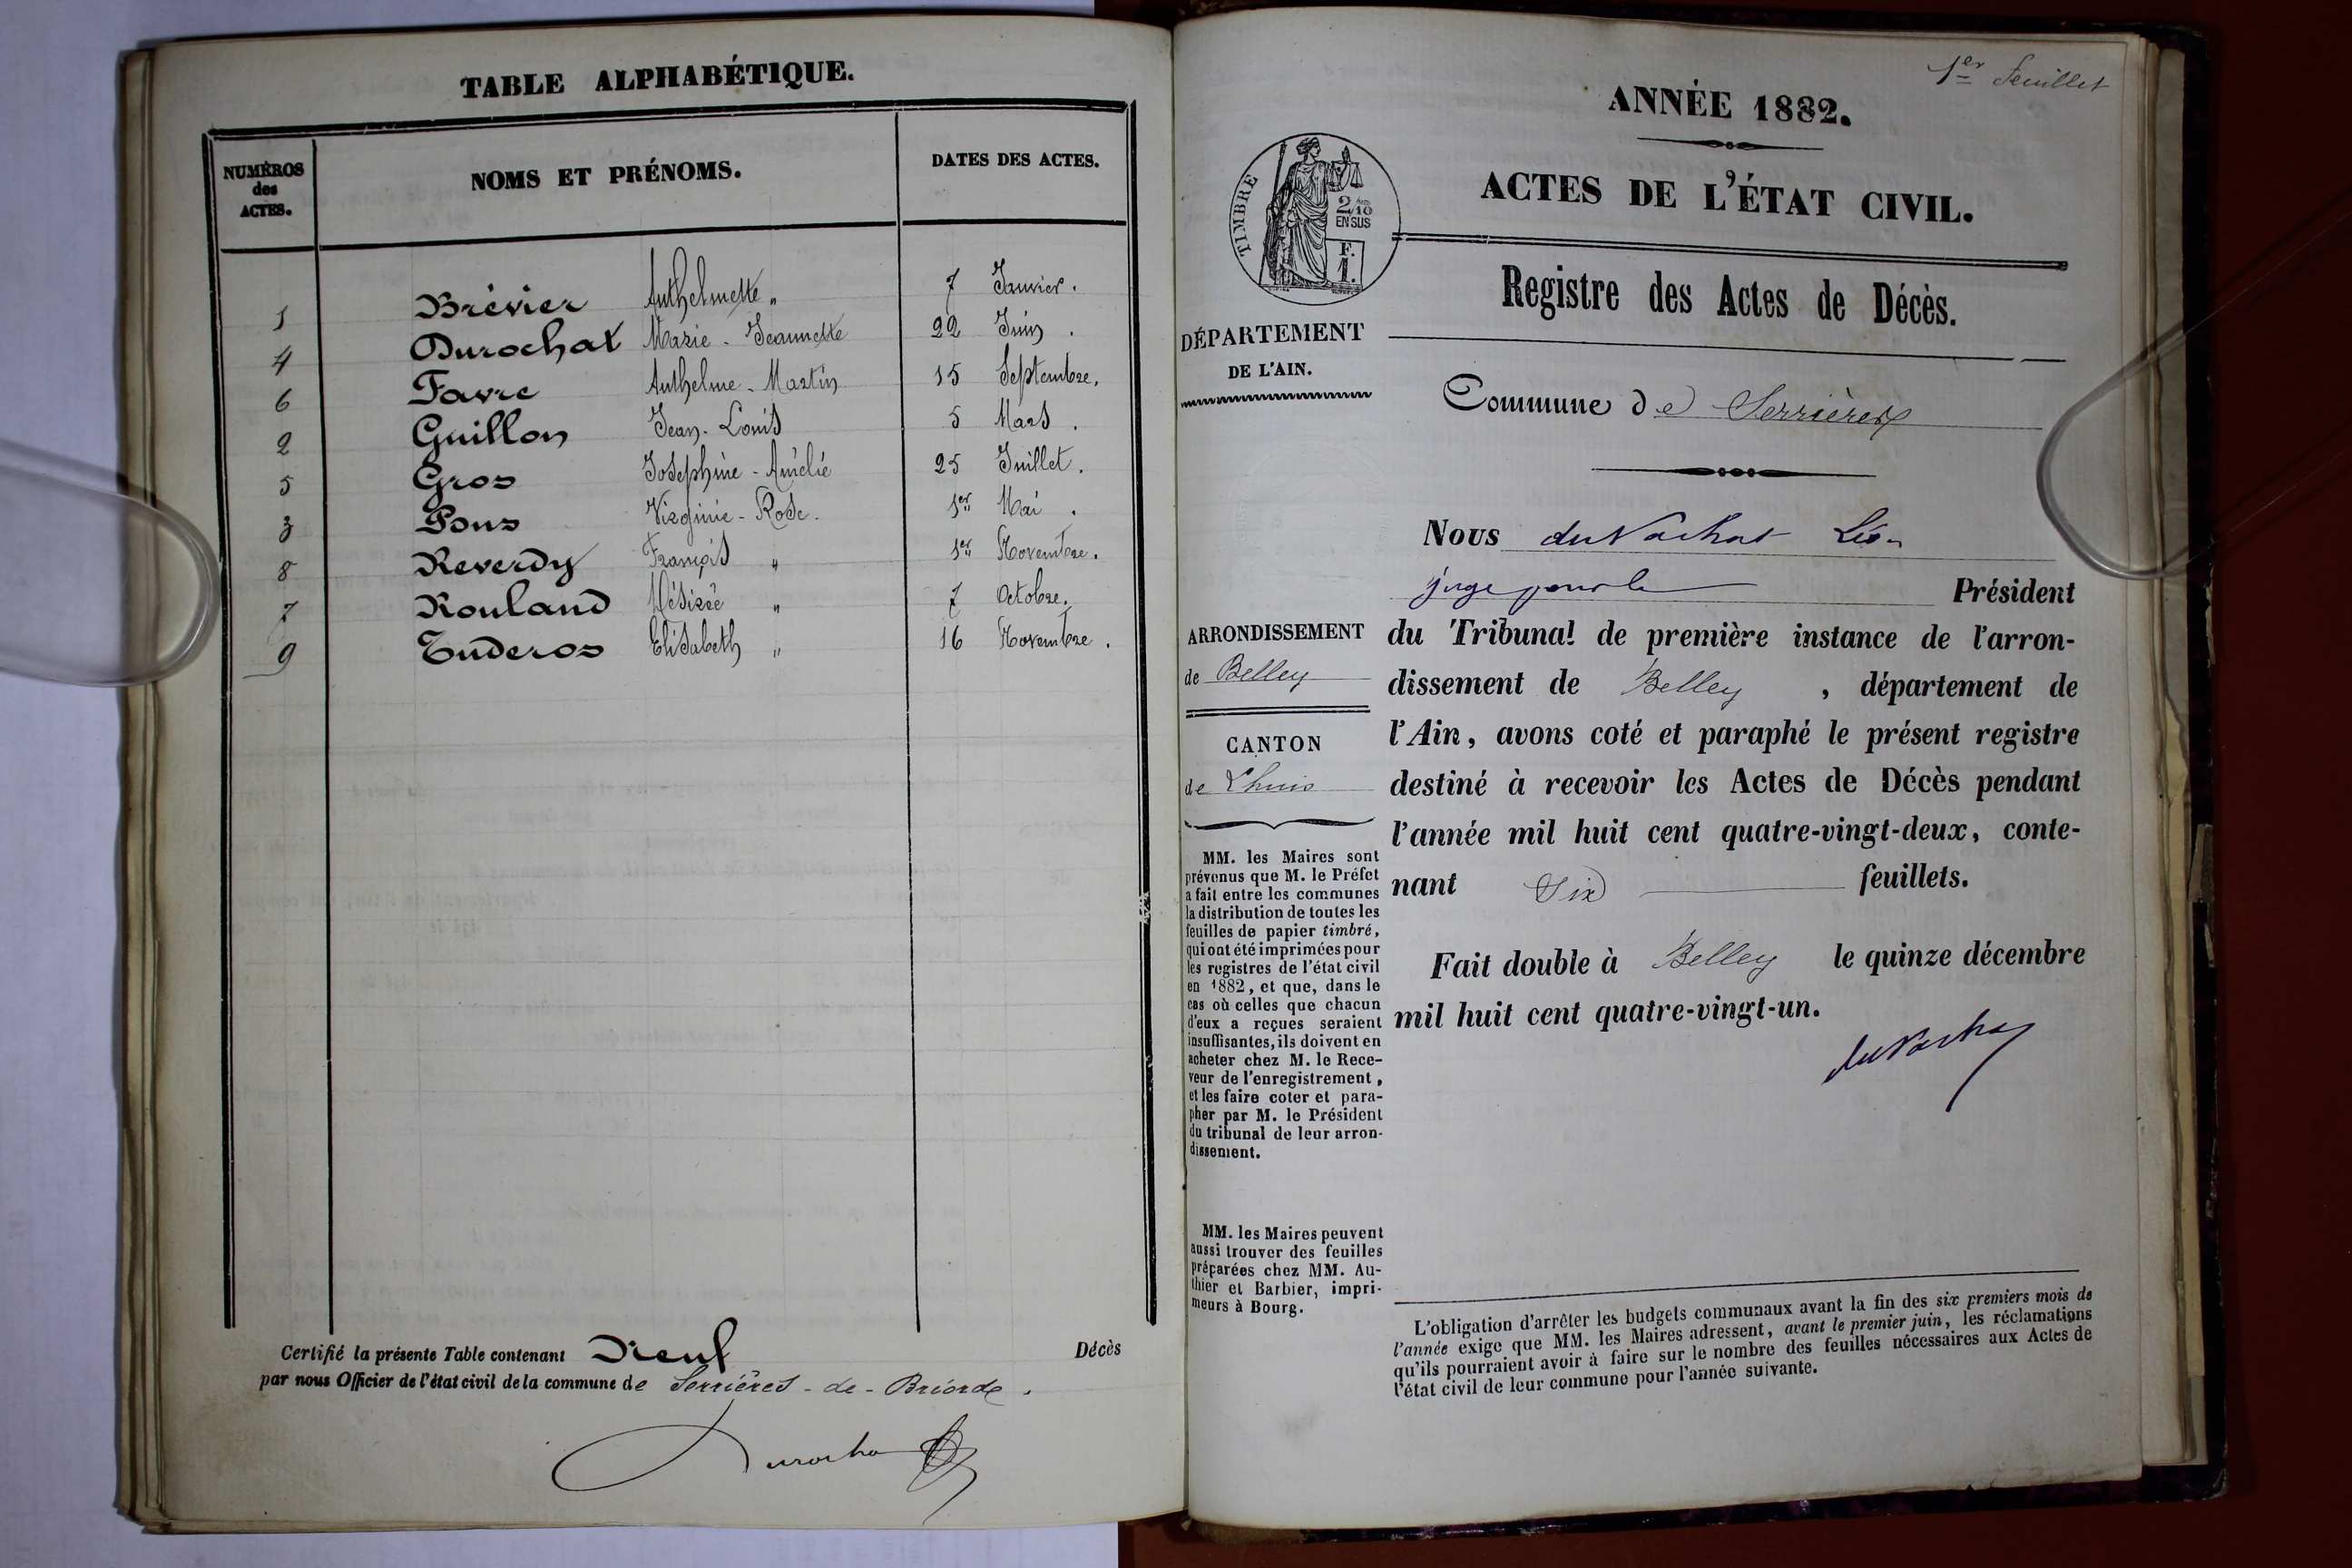 TABLE ALPHABÉTIQUE.
NUMÉROS des ACTES. NOMS ET PRÉNOMS. DATES DES ACTES.
1 Brévier Anthelmette " 7 Janvier.
4 Durochat Marie-Jeannette 22 Juin.
6 Favre Anthelme-Martin 15 Septembre.
2 Guillon Jean-Louis 5 Mars.
5 Gros Joséphine-Amélie 25 Juillet.
3 Pons Virginie-Rose. 1er Mai.
8 Reverdy François " 1er Novembre.
7 Rouland Désirée " 7 Octobre.
9 Tuderos Elisabeth " 16 Novembre.
Certifié la présente Table contenant Neuf Décès
par nous Officier de l'état civil de la commune de Serrières-de-Briorde.
Durochat
1er feuillet
ANNÉE 1882.
ACTES DE L'ÉTAT CIVIL.
TIMBRE
2/10
EN SUS
F.
1.
Registre des Actes de Décès.
DÉPARTEMENT
DE L'AIN.
Commune de Serrières
Nous du Vachat Léon
juge pour le Président
ARRONDISSEMENT
de Belley
CANTON
de Lhuis
du Tribunal de première instance de l'arron-
dissement de Belley, département de
l'Ain, avons coté et paraphé le présent registre
destiné à recevoir les Actes de Décès pendant
l'année mil huit cent quatre-vingt-deux, conte-
nant Six feuillets.
Fait double à Belley le quinze décembre
mil huit cent quatre-vingt-un.
du Vachat
MM. les Maires sont
prévenus que M. le Préfet
a fait entre les communes
la distribution de toutes les
feuilles de papier timbré,
qui ont été imprimées pour
les registres de l'état civil
en 1882, et que, dans le
cas où celles que chacun
d'eux a reçues seraient
insuffisantes, ils doivent en
acheter chez M. le Rece-
veur de l'enregistrement,
et les faire coter et para-
pher par M. le Président
du tribunal de leur arron-
dissement.
MM. les Maires peuvent
aussi trouver des feuilles
préparées chez MM. Au-
thier et Barbier, impri-
meurs à Bourg.
L'obligation d'arrêter les budgets communaux avant la fin des six premiers mois de
l'année exige que MM. les Maires adressent, avant le premier juin, les réclamations
qu'ils pourraient avoir à faire sur le nombre des feuilles nécessaires aux Actes de
l'état civil de leur commune pour l'année suivante.